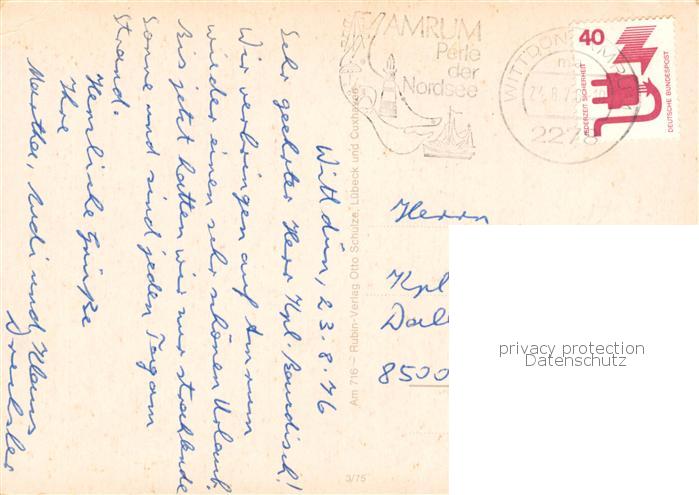 Wittdün, 23.8.76
Sehr geehrter Herr Kpl. Bendisch!
Wir verbringen auf Amrum
wieder einen sehr schönen Urlaub.
Bis jetzt hatten wir nur strahlende
Sonne und sind jeden Tag am
Strand.
Herzliche Grüße
Ihre
Martha, Rudi und Klaus
Drechsler
Am 716 – Rubin-Verlag Otto Schulze, Lübeck und Cuxhaven
3/75
AMRUM
Perle
der
Nordsee
WITTDÜN AMRUM
2278
40
JEDERZEIT SICHERHEIT
DEUTSCHE BUNDESPOST
Herrn
Kpl
8500
privacy protection
Datenschutz